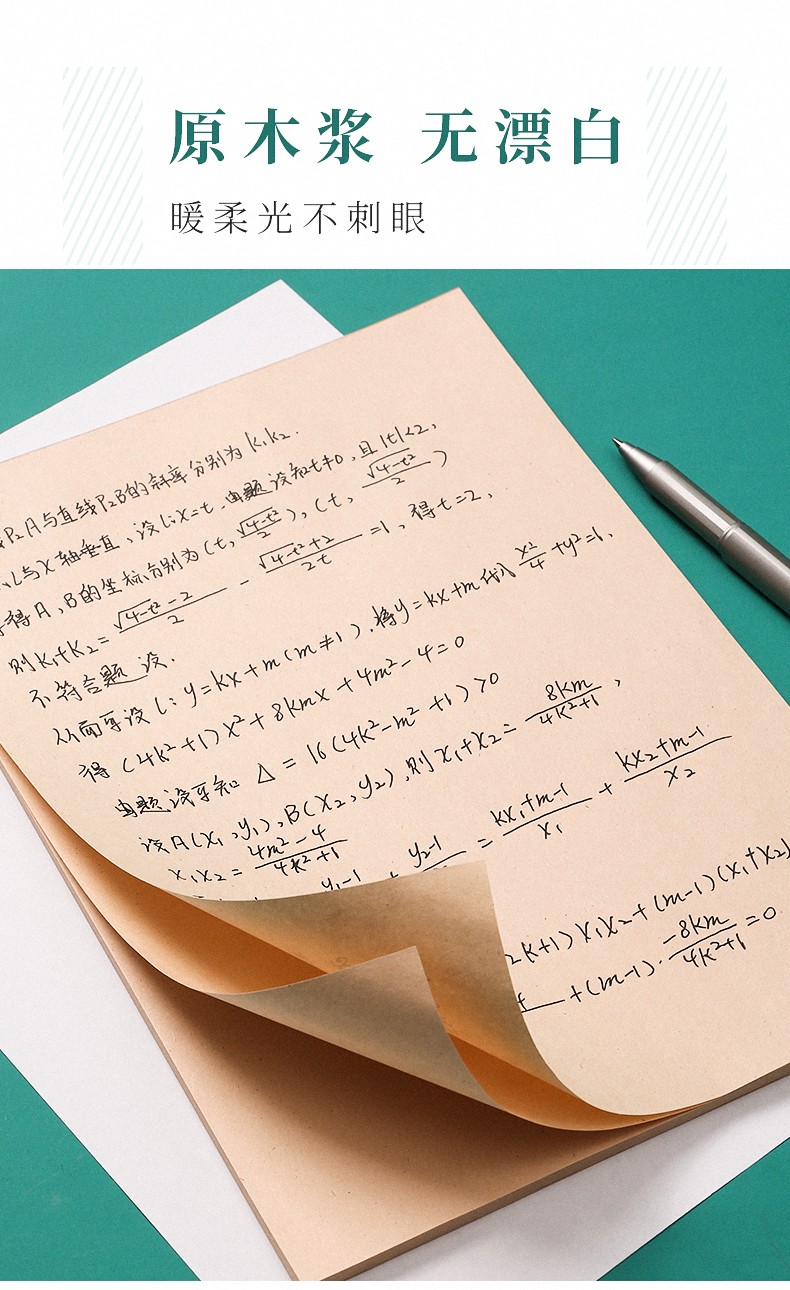 原木浆 无漂白
暖柔光不刺眼
P₂A与直线P₂B的斜率分别为k₁k₂.
l与x轴垂直,设l:x=t,由题设知t≠0,且|t|<2,
得A,B的坐标分别为(t, √(4-t²)/2),(t, √(4-t²)/2)
则k₁+k₂= (√(4-t²)-2)/2 - (√(4-t²)+2)/2t =1,得t=2,
不符合题设.
从而可设l:y=kx+m(m≠1).将y=kx+m代入 x²/4 +y²=1,
得(4k²+1)x²+8kmx+4m²-4=0
由题设可知 Δ=16(4k²-m²+1)>0
设A(x₁,y₁),B(x₂,y₂),则x₁+x₂= - 8km/(4k²+1),
x₁x₂= (4m²-4)/(4k²+1)
y₁-1 + y₂-1 = (kx₁+m-1)/x₁ + (kx₂+m-1)/x₂
2k+1)x₁x₂+(m-1)(x₁+x₂)
+(m-1)· -8km/(4k²+1) =0